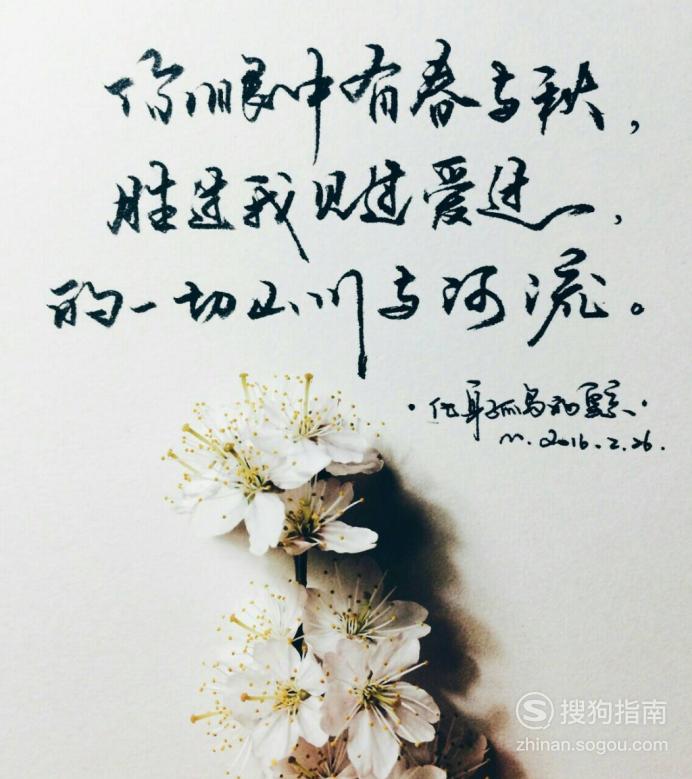 你的眼中有春与秋，
胜过我见过爱过，
的一切山川与河流。
·化身孤岛的鲸·
m.2016.2.26.
搜狗指南
zhinan.sogou.com